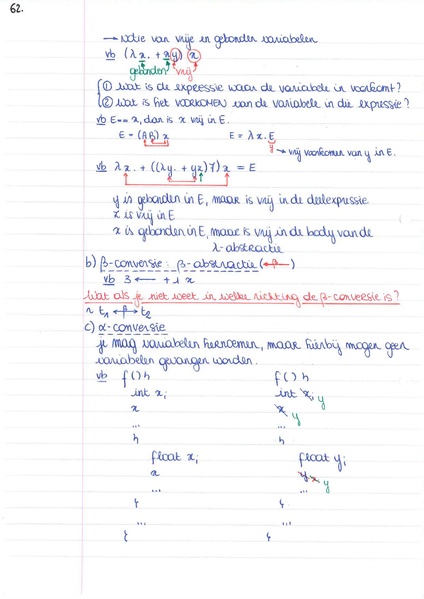 62.
→ Notie van vrije en gebonden variabelen
vb (λ x. + x y) x
gebonden vrij
① Wat is de expressie waar de variabele in voorkomt?
② Wat is het VOORKOMEN van de variabele in die expressie?
vb E == x, dan is x vrij in E.
E = (A B) x E = λ x. E
y → vrij voorkomen van y in E.
vb λ x. + ((λy. + yz) 7) x = E
y is gebonden in E, maar is vrij in de deelexpressie
z is vrij in E
x is gebonden in E, maar is vrij in de body van de
λ-abstractie
b) β-conversie: β-abstractie (←β)
vb 3 ← + 1 x
Wat als je niet weet in welke richting de β-conversie is?
~ t1 ←β→ t2
c) α-conversie
je mag variabelen hernoemen, maar hierbij mogen geen
variabelen gevangen worden.
vb f() { f() {
int x; int x; y
x x y
... ...
{ {
float x; float y;
x y x y
... ...
} }
... ...
} }